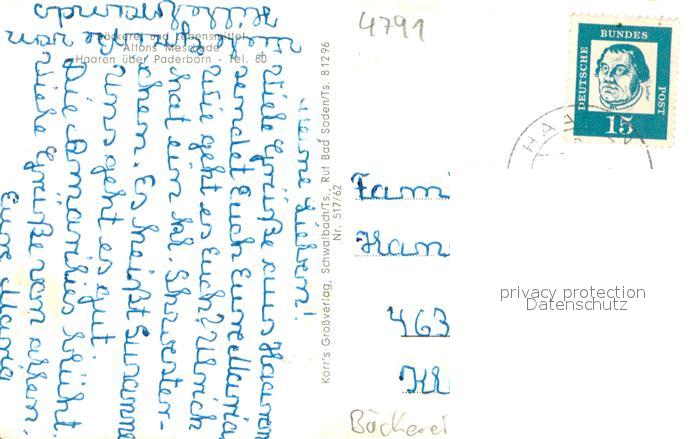 Bäckerei und Lebensmittel
Alfons Meschede
Haaren über Paderborn - Tel. 80
Meine Lieben!
Viele Grüße aus Haaren
sendet Euch Eure Maria
Wie geht es Euch? Ulrich
hat ein kl. Schwester-
chen. Es heißt Susanne
Uns geht es gut.
Die Amarilles blüht.
Viele Grüße von allen.
Eure Maria
Korr's Großverlag, Schwalbach/Ts., Ruf Bad Soden/Ts. 81296
Nr. 517/62
4791
DEUTSCHE BUNDES POST
Luther
15
HAA
Fam
Han
463
Kl
Bäckerei
privacy protection
Datenschutz